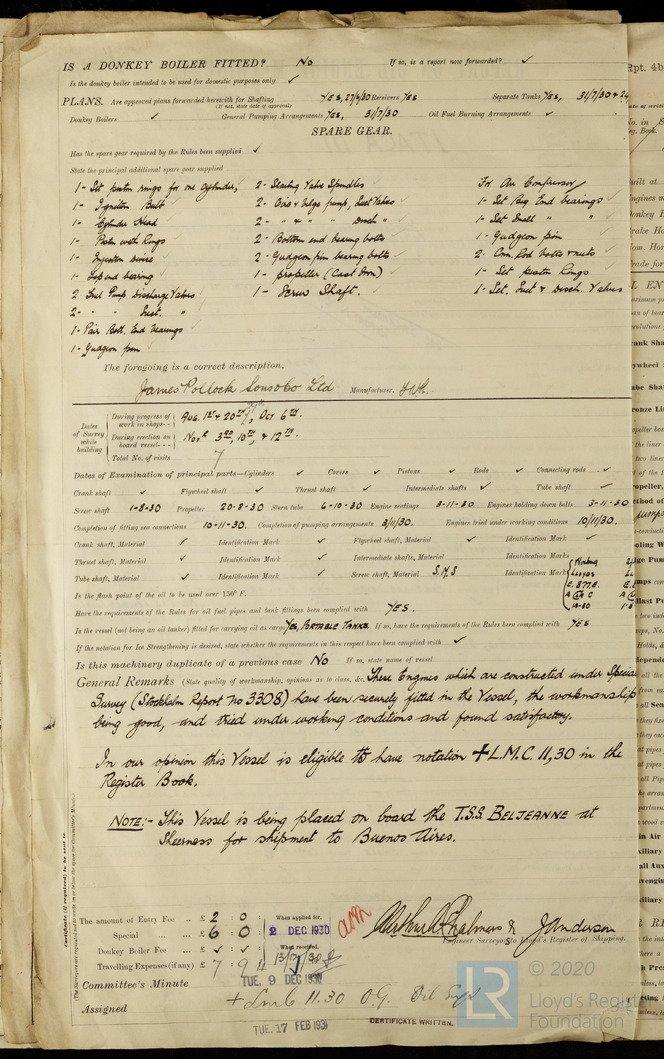 IS A DONKEY BOILER FITTED? No If so, is a report now forwarded? ✓
Is the donkey boiler intended to be used for domestic purposes only ✓
PLANS. Are approved plans forwarded herewith for Shafting YES, Receivers Yes Separate Tanks Yes, 31/7/30
(If not, state date of approval)
Donkey Boilers ✓ General Pumping Arrangements Yes, 31/7/30 Oil Fuel Burning Arrangements ✓
SPARE GEAR.
Has the spare gear required by the Rules been supplied ✓
State the principal additional spare gear supplied
1- Set piston rings for one cylinder, 2- Starting Valve Spindles For Air Compressor
1- Ignition Bulb 2- Bilge pump, Suct Valves 1- Set Big End bearings
1- Cylinder Head 2- " " " Disch " 1- Set Small " "
1- Piston with Rings 2- Bottom end bearing bolts 1- Gudgeon pin
1- Injection 2- Gudgeon pin bearing bolts 2- Conn. Rod bolts & nuts
1- Top end bearing 1- propeller (Cast Iron) 1- Set piston Rings
2 Fuel Pump Discharge Valves 1- Screw Shaft. 1- Set, Suct & Disch. Valves
2- " " Suct. "
1- Pair Bott. End bearings
1- Gudgeon pin
The foregoing is a correct description,
James Pollock Sons & Co Ltd Manufacturer.
Dates of Survey while building
During progress of work in shops - - Aug. 1st & 20th, Oct 6th.
During erection on board vessel - - - Novr 3rd, 10th, & 12th.
Total No. of visits 7
Dates of Examination of principal parts—Cylinders ✓ Covers ✓ Pistons ✓ Rods ✓ Connecting rods ✓
Crank shaft ✓ Flywheel shaft ✓ Thrust shaft ✓ Intermediate shafts ✓ Tube shaft ✓
Screw shaft 1-8-30 Propeller 20-8-30 Stern tube 6-10-30 Engine seatings 3-11-30 Engines holding down bolts 3-11-30
Completion of fitting sea connections 10-11-30. Completion of pumping arrangements 3/11/30. Engines tried under working conditions 10/11/30.
Crank shaft, Material ✓ Identification Mark ✓ Flywheel shaft, Material ✓ Identification Mark ✓
Thrust shaft, Material ✓ Identification Mark ✓ Intermediate shafts, Material Identification Marks
Tube shaft, Material ✓ Identification Mark ✓ Screw shaft, Material S.M.S Identification Mark
Lloyds
Is the flash point of the oil to be used over 150° F.
Have the requirements of the Rules for oil fuel pipes and tank fittings been complied with YES.
Is the vessel (not being an oil tanker) fitted for carrying oil as cargo YES, PORTABLE TANKS. If so, have the requirements of the Rules been complied with YES
If the notation for Ice Strengthening is desired, state whether the requirements in this respect have been complied with ✓
Is this machinery duplicate of a previous case No If so, state name of vessel
General Remarks (State quality of workmanship, opinions as to class, &c. These Engines which are constructed under Special
Survey (Stockholm Report no 3308) have been securely fitted in the Vessel, the workmanship
being good, and tried under working conditions and found satisfactory.
In our opinion this Vessel is eligible to have notation + L.M.C. 11,30 in the
Register Book.
NOTE:- This Vessel is being placed on board the T.S.S. BELJEANNE at
Sheerness for shipment to Buenos Aires.
The amount of Entry Fee .. £ 2 : 0 When applied for,
Special ... £ 6 : 0 2 DEC 1930
Donkey Boiler Fee ... £ ✓ : ✓ When received,
Travelling Expenses (if any) £ 7 : 9
Engineer Surveyors to Lloyd's Register of Shipping.
Committee's Minute TUE. 9 DEC 1930
Assigned + LMC 11.30 O.G.
TUE. 17 FEB 1931
CERTIFICATE WRITTEN.
LR © 2020
Lloyd's Register
Foundation
Rpt. 4b